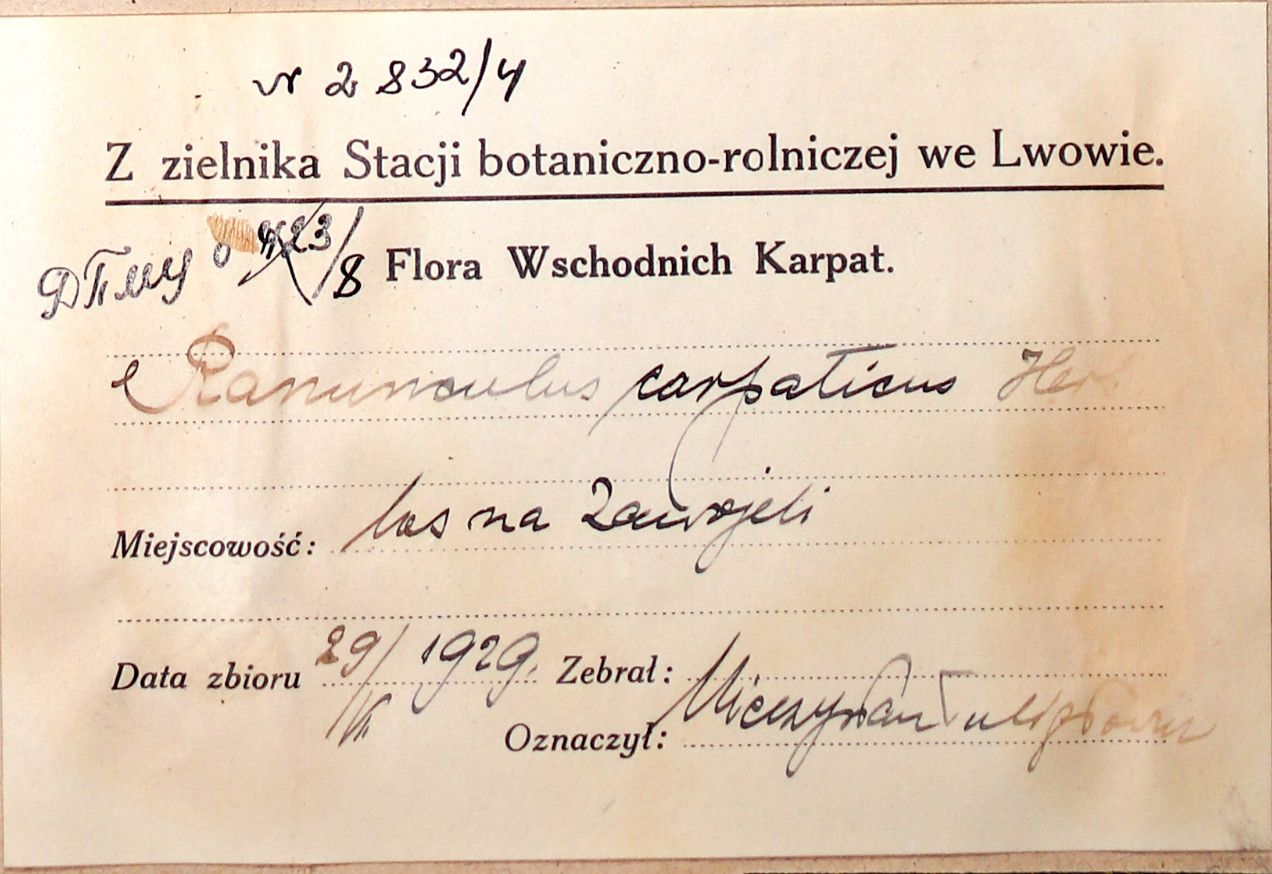 № 2 832/4
Z zielnika Stacji botaniczno-rolniczej we Lwowie.
/8 Flora Wschodnich Karpat.
Ranunculus carpaticus Her
Miejscowość: las na Zawojeli
Data zbioru 29/ 1929. Zebrał:
Oznaczył: Mieczysław